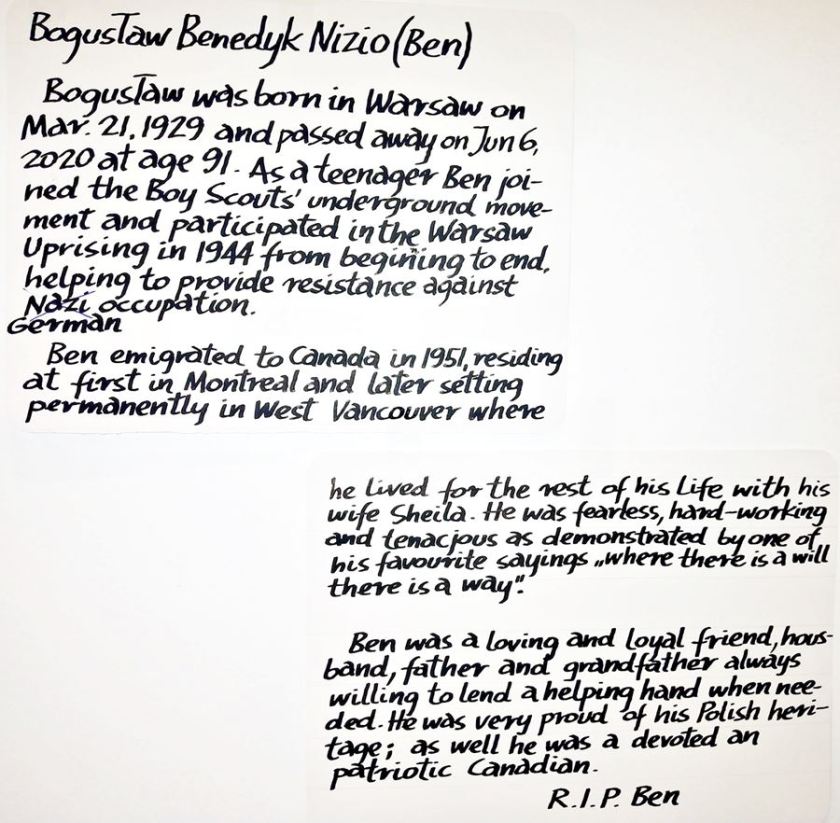 Bogusław Benedyk Nizio (Ben)
Bogusław was born in Warsaw on
Mar. 21, 1929 and passed away on Jun 6,
2020 at age 91. As a teenager Ben joi-
ned the Boy Scouts' underground move-
ment and participated in the Warsaw
Uprising in 1944 from begining to end,
helping to provide resistance against
Nazi occupation.
German
Ben emigrated to Canada in 1951, residing
at first in Montreal and later setting
permanently in West Vancouver where
he lived for the rest of his Life with his
wife Sheila. He was fearless, hard-working
and tenacjous as demonstrated by one of
his favourite sayings „where there is a will
there is a way".
Ben was a loving and loyal friend, hous-
band, father and grandfather always
willing to lend a helping hand when nee-
ded. He was very proud of his Polish heri-
tage; as well he was a devoted an
patriotic Canadian.
R.I.P. Ben